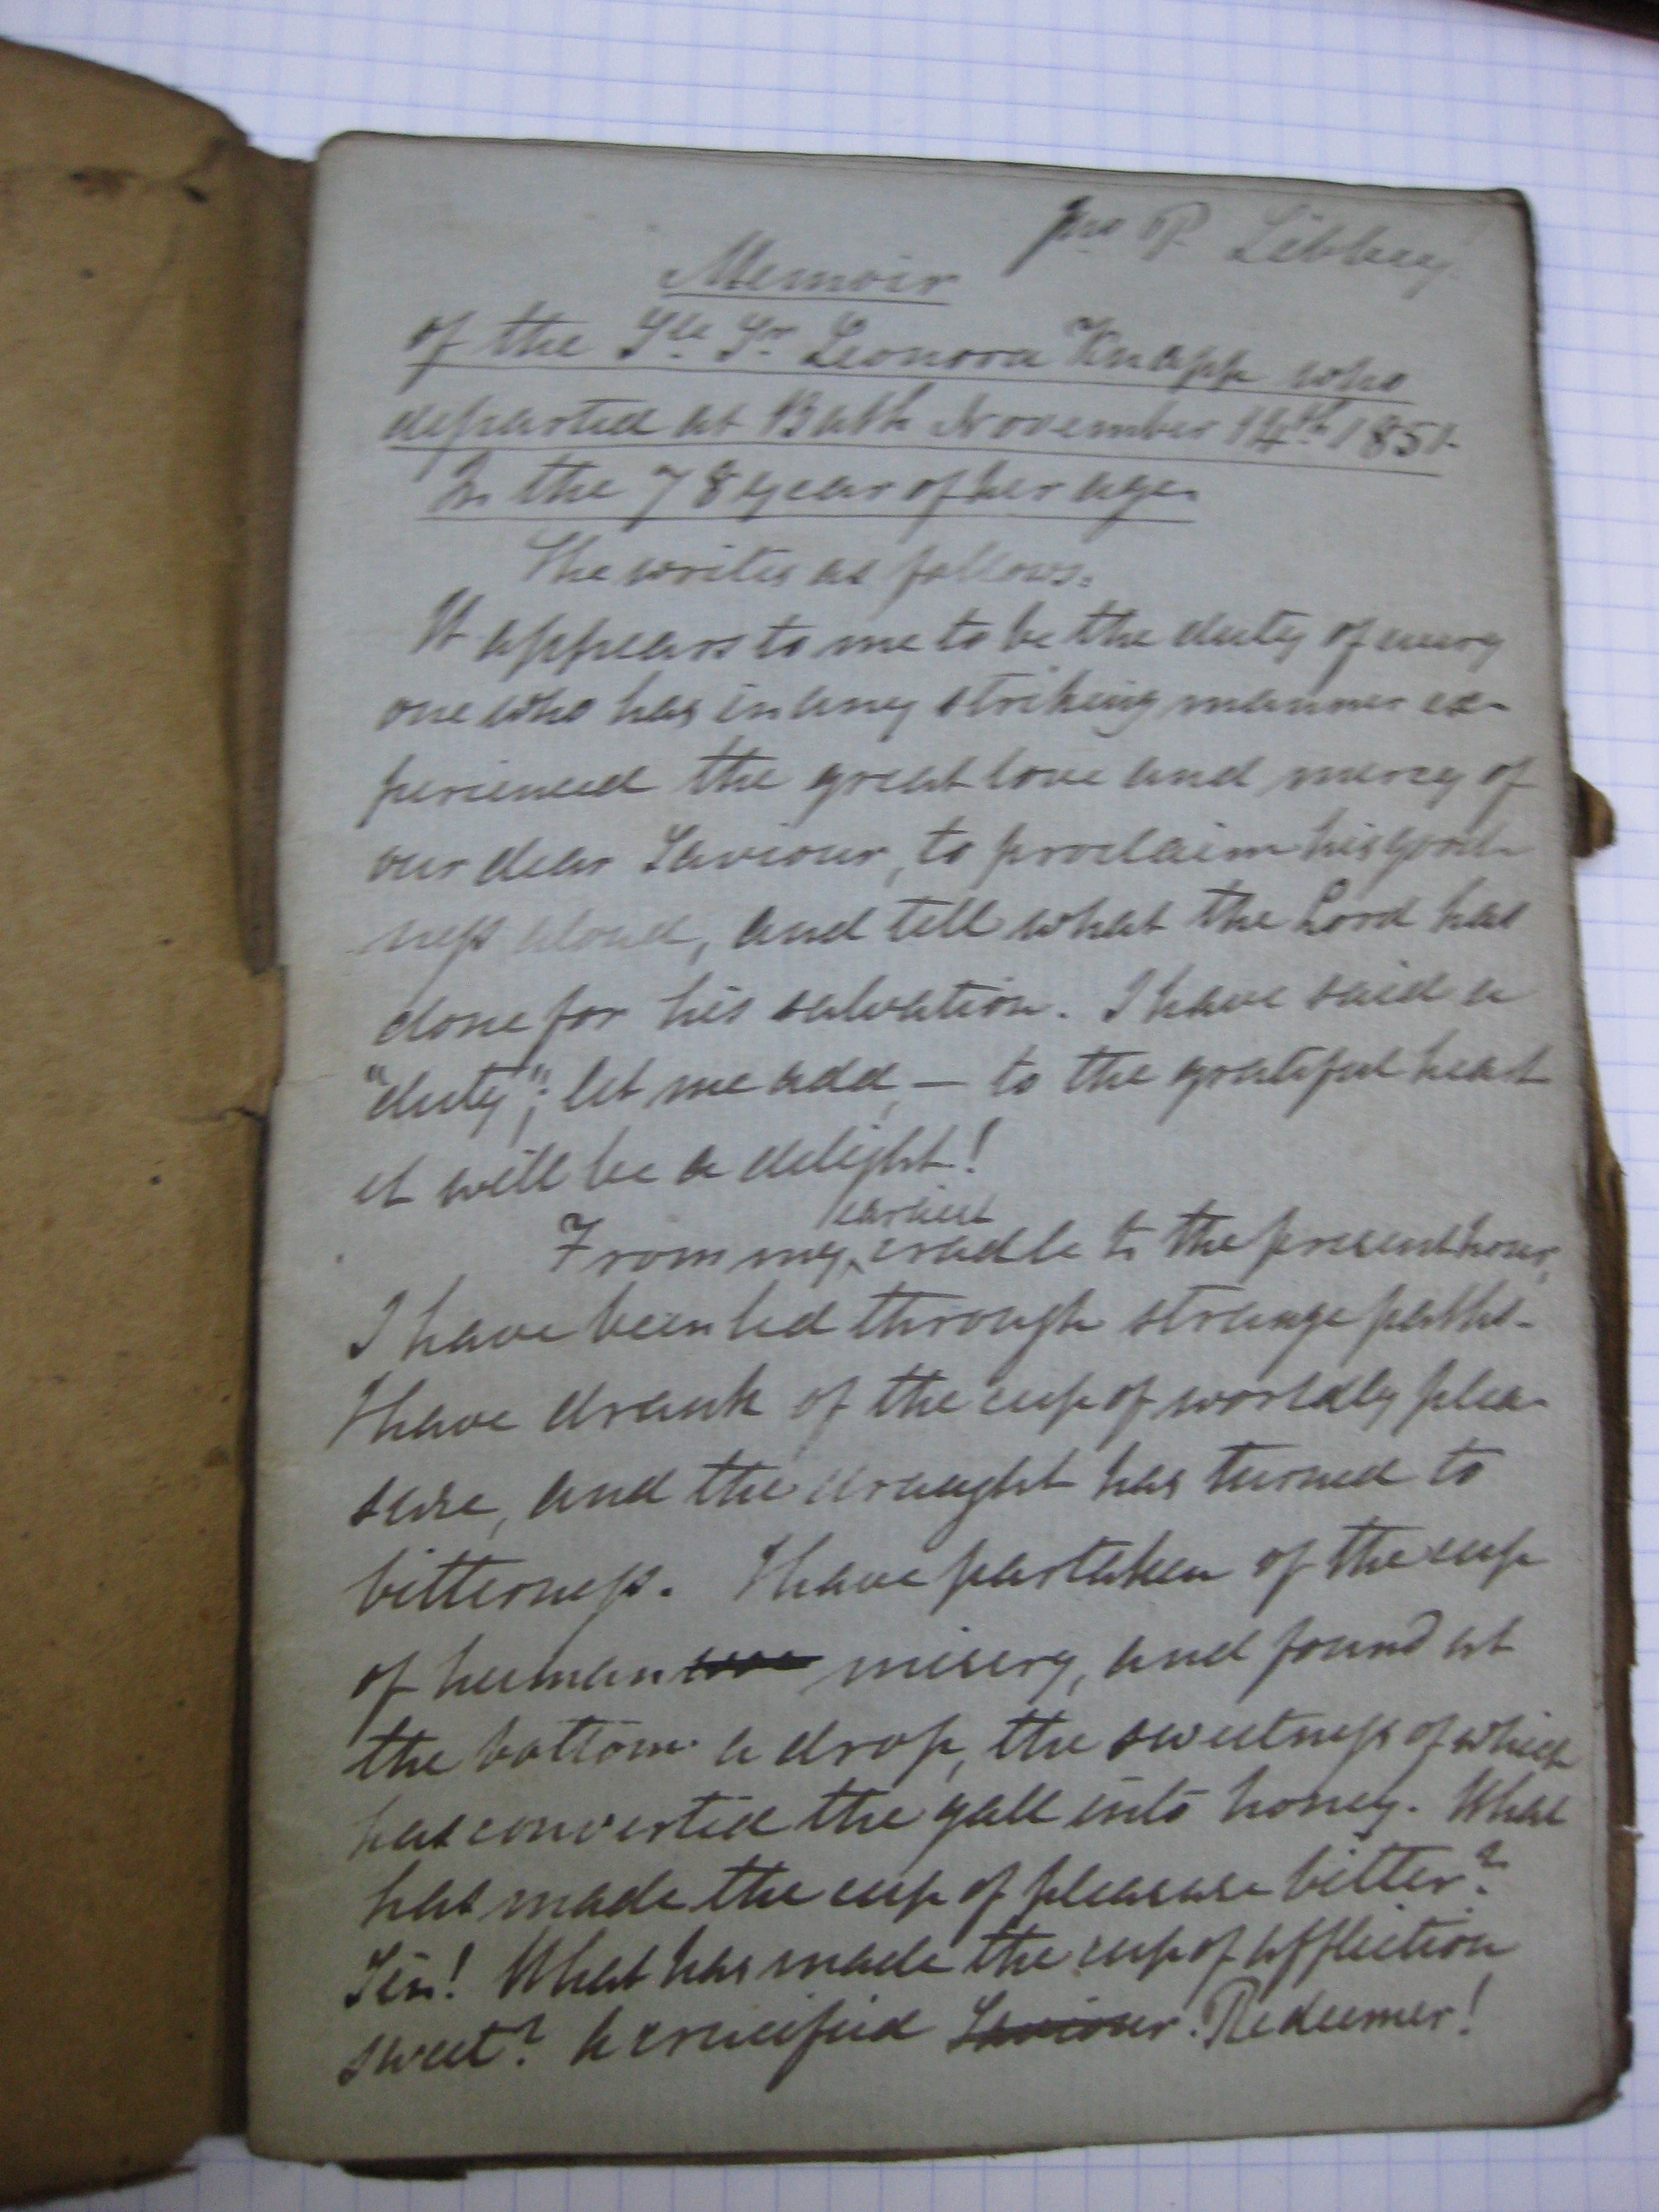 Jno P. Libbey
Memoir
of the Sle. Sr. Leonora Knapp who
departed at Bath November 14th 1851.
In the 78 year of her age.
She writes as follows.
It appears to me to be the duty of every
one who has in any striking manner ex-
perienced the great love and mercy of
our dear Saviour, to proclaim his good-
ness aloud, and tell what the Lord has
done for his salvation. I have said a
"duty"; let me add, — to the grateful heart
it will be a delight!
earliest
From my cradle to the present hour,
I have been led through strange paths.
I have drank of the cup of worldly plea-
sure, and the draught has turned to
bitterness. I have partaken of the cup
of human woe misery, and found at
the bottom a drop, the sweetness of which
has converted the gall into honey. What
has made the cup of pleasure bitter?
Sin! What has made the cup of affliction
sweet? A crucified Saviour. Redeemer!